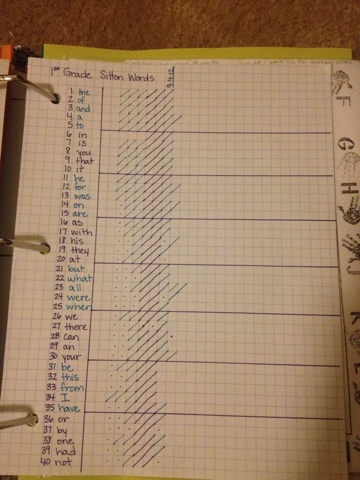 1st Grade Sitton Words
9.4.12
1. the
2. of
3. and
4. a
5. to
6 in
7. is
8. you
9. that
10. it
11. he
12. for
13. was
14. on
15. are
16. as
17. with
18. his
19. they
20. at
21. but
22. what
23. all
24. were
25. when
26. we
27 there
28. can
29. an
30. your
31. be
32. this
33. from
34. I
35. have
36. or
37. by
38. one
39. had
40. not
F
G
H